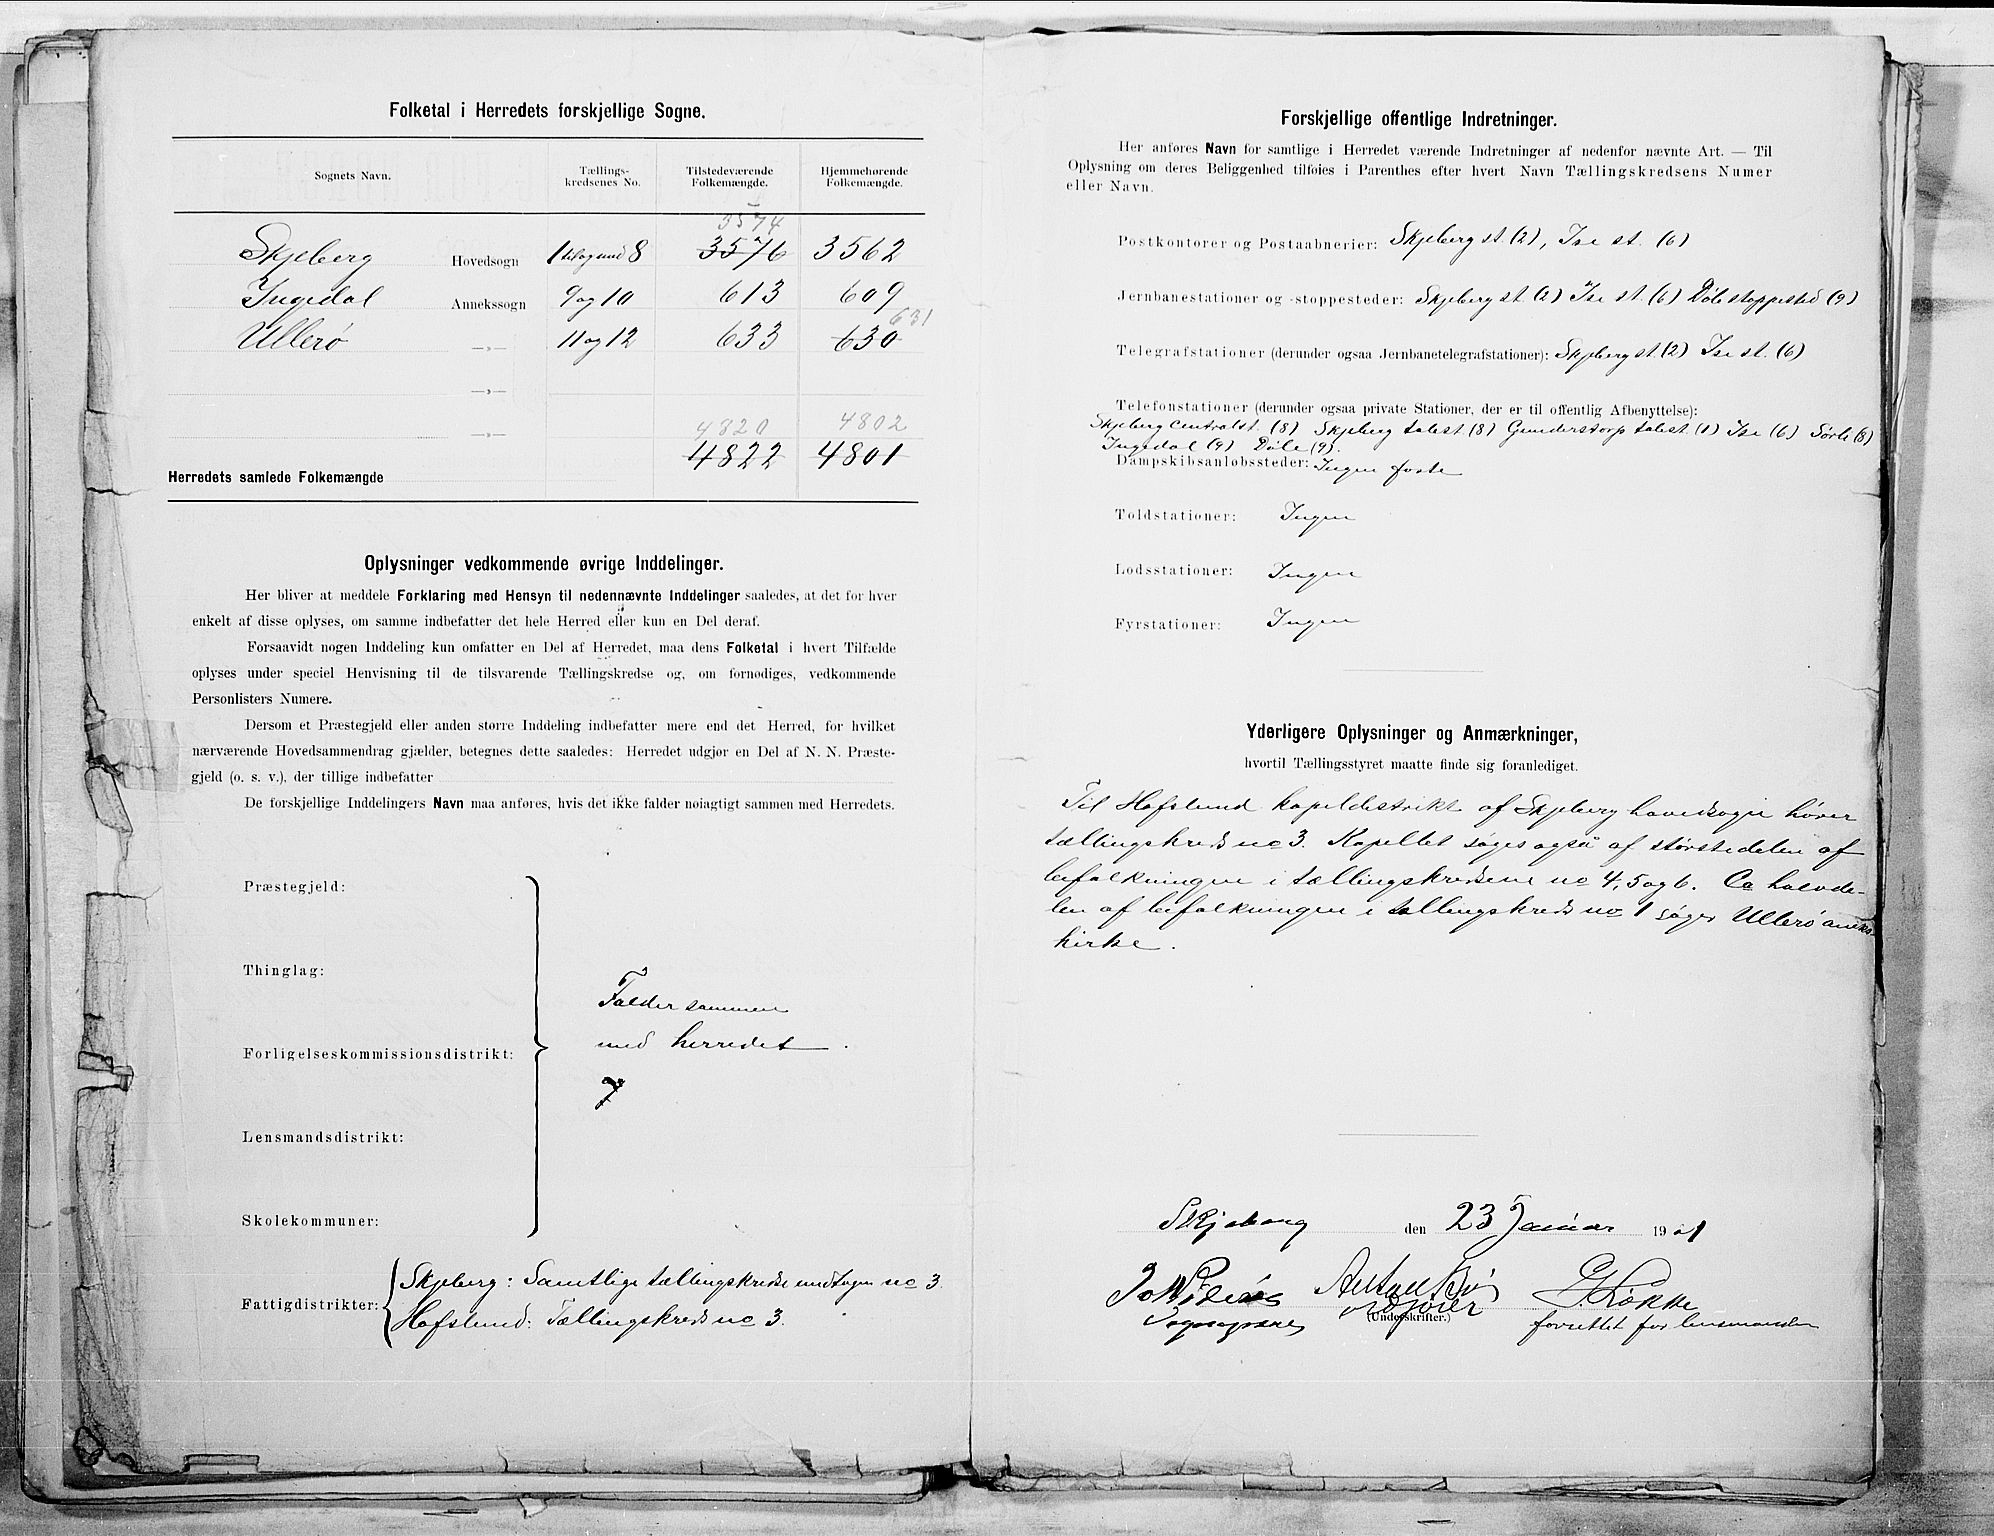 Folketal i Herredets forskjellige Sogne.
Sognets Navn.
Tællings-
kredsenes No.
Tilstedeværende
Folkemængde.
Hjemmehørende
Folkemængde.
3574
Skjeberg Hovedsogn 1 til og med 8 3576 3562
Ingedal Annekssogn 9 og 10 613 609
631
Ullerø —„— 11 og 12 633 630
—„—
4820 4802
—„—
4822 4801
Herredets samlede Folkemængde
Oplysninger vedkommende øvrige Inddelinger.
Her bliver at meddele Forklaring med Hensyn til nedennævnte Inddelinger saaledes, at det for hver
enkelt af disse oplyses, om samme indbefatter det hele Herred eller kun en Del deraf.
Forsaavidt nogen Inddeling kun omfatter en Del af Herredet, maa dens Folketal i hvert Tilfælde
oplyses under speciel Henvisning til de tilsvarende Tællingskredse og, om fornødiges, vedkommende
Personlisters Numere.
Dersom et Præstegjeld eller anden større Inddeling indbefatter mere end det Herred, for hvilket
nærværende Hovedsammendrag gjælder, betegnes dette saaledes: Herredet udgjør en Del af N. N. Præste-
gjeld (o. s. v.), der tillige indbefatter
De forskjellige Inddelingers Navn maa anføres, hvis det ikke falder nøiagtigt sammen med Herredets.
Præstegjeld:
Thinglag:
Falder sammen
med herredet.
Forligelseskommissionsdistrikt:
Lensmandsdistrikt:
Skolekommuner:
Skjeberg: Samtlige tællingskredse undtagen no 3
Fattigdistrikter:
Hafslund: Tællingskreds no 3.
Forskjellige offentlige Indretninger.
Her anføres Navn for samtlige i Herredet værende Indretninger af nedenfor nævnte Art. — Til
Oplysning om deres Beliggenhed tilføies i Parenthes efter hvert Navn Tællingskredsens Numer
eller Navn.
Postkontorer og Postaabnerier: Skjeberg st. (2), Ise st. (6)
Jernbanestationer og -stoppesteder: Skjeberg st. (2) Ise st. (6) Døle stoppested (9)
Telegrafstationer (derunder ogsaa Jernbanetelegrafstationer): Skjeberg st. (2) Ise st. (6)
Telefonstationer (derunder ogsaa private Stationer, der er til offentlig Afbenyttelse):
Skjeberg centralst. (8) Skjeberg talest (8) Gunderstorp talest (1) Ise (6) Sørli (8)
Ingedal (9) Døle (9).
Dampskibsanløbssteder: Ingen faste
Toldstationer: Ingen
Lodsstationer: Ingen
Fyrstationer: Ingen
Yderligere Oplysninger og Anmærkninger,
hvortil Tællingsstyret maatte finde sig foranlediget.
Til Hafslund kapeldistrikt af Skjeberg hovedsogn hører
tællingskreds no 3. Kapellet søges også af størstedelen af
befolkningen i tællingskredsene no 4, 5 og 6. Ca halvde-
len af befolkningen i tællingskreds no 1 søger Ullerø aneks-
kirke.
Skjeberg den 23 Januar 1901
Anton Bø G. Løkke
Sogneprest ordfører (Underskrifter.) forrettet for lensmanden